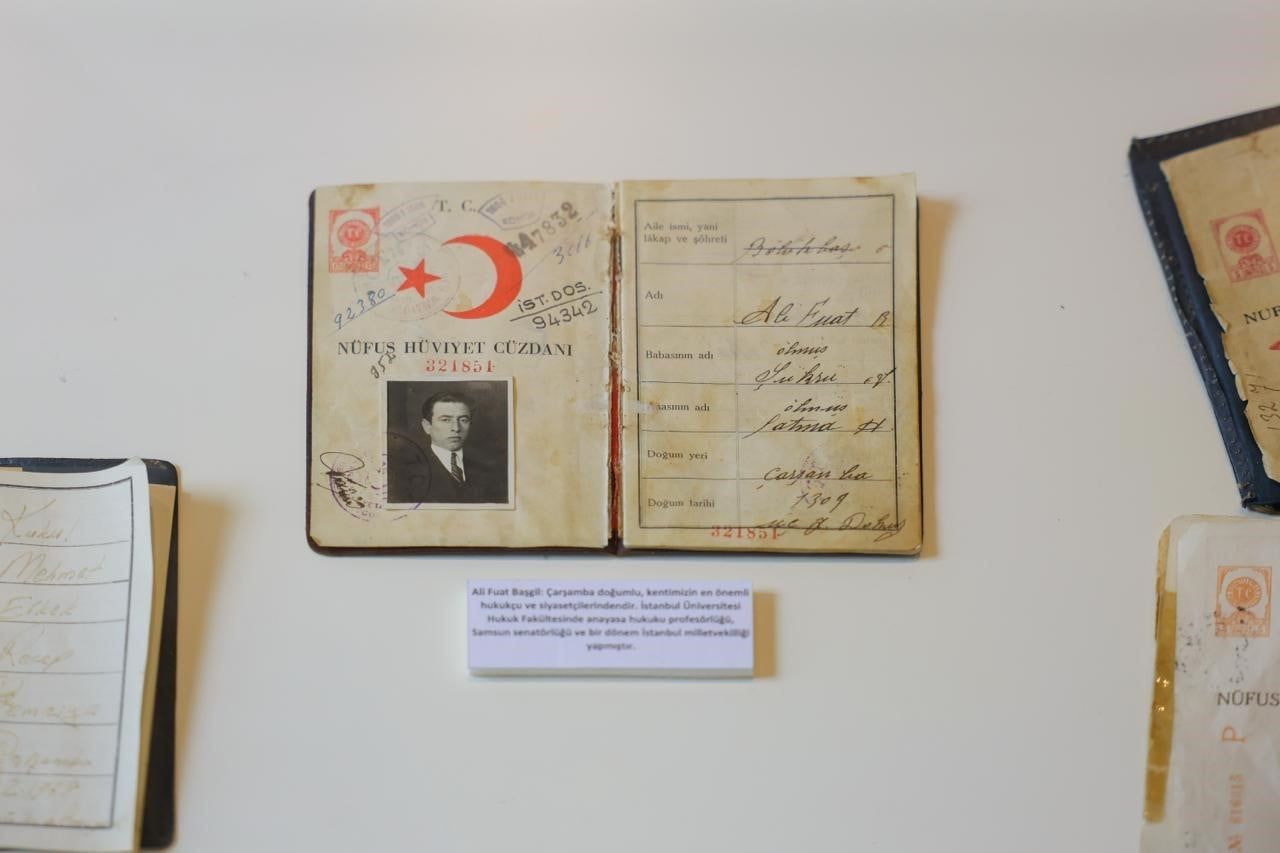 T. C.
447832
92380
İST. DOS.
94342
NÜFUS HÜVİYET CÜZDANI
321851
Aile ismi, yani
lâkap ve şöhreti
Adı
Ali Fuat
Babasının adı
ölmüş
Şükrü
adı
ölmüş
Fatma H.
Doğum yeri
Çarşanba
Doğum tarihi
1309
321851
Ali Fuat Başgil: Çarşamba doğumlu, kentimizin en önemli
hukukçu ve siyasetçilerindendir. İstanbul Üniversitesi
Hukuk Fakültesinde anayasa hukuku profesörlüğü,
Samsun senatörlüğü ve bir dönem İstanbul milletvekilliği
yapmıştır.
Mehmet
Erkek
Recep
TC
TC
NÜFUS
P